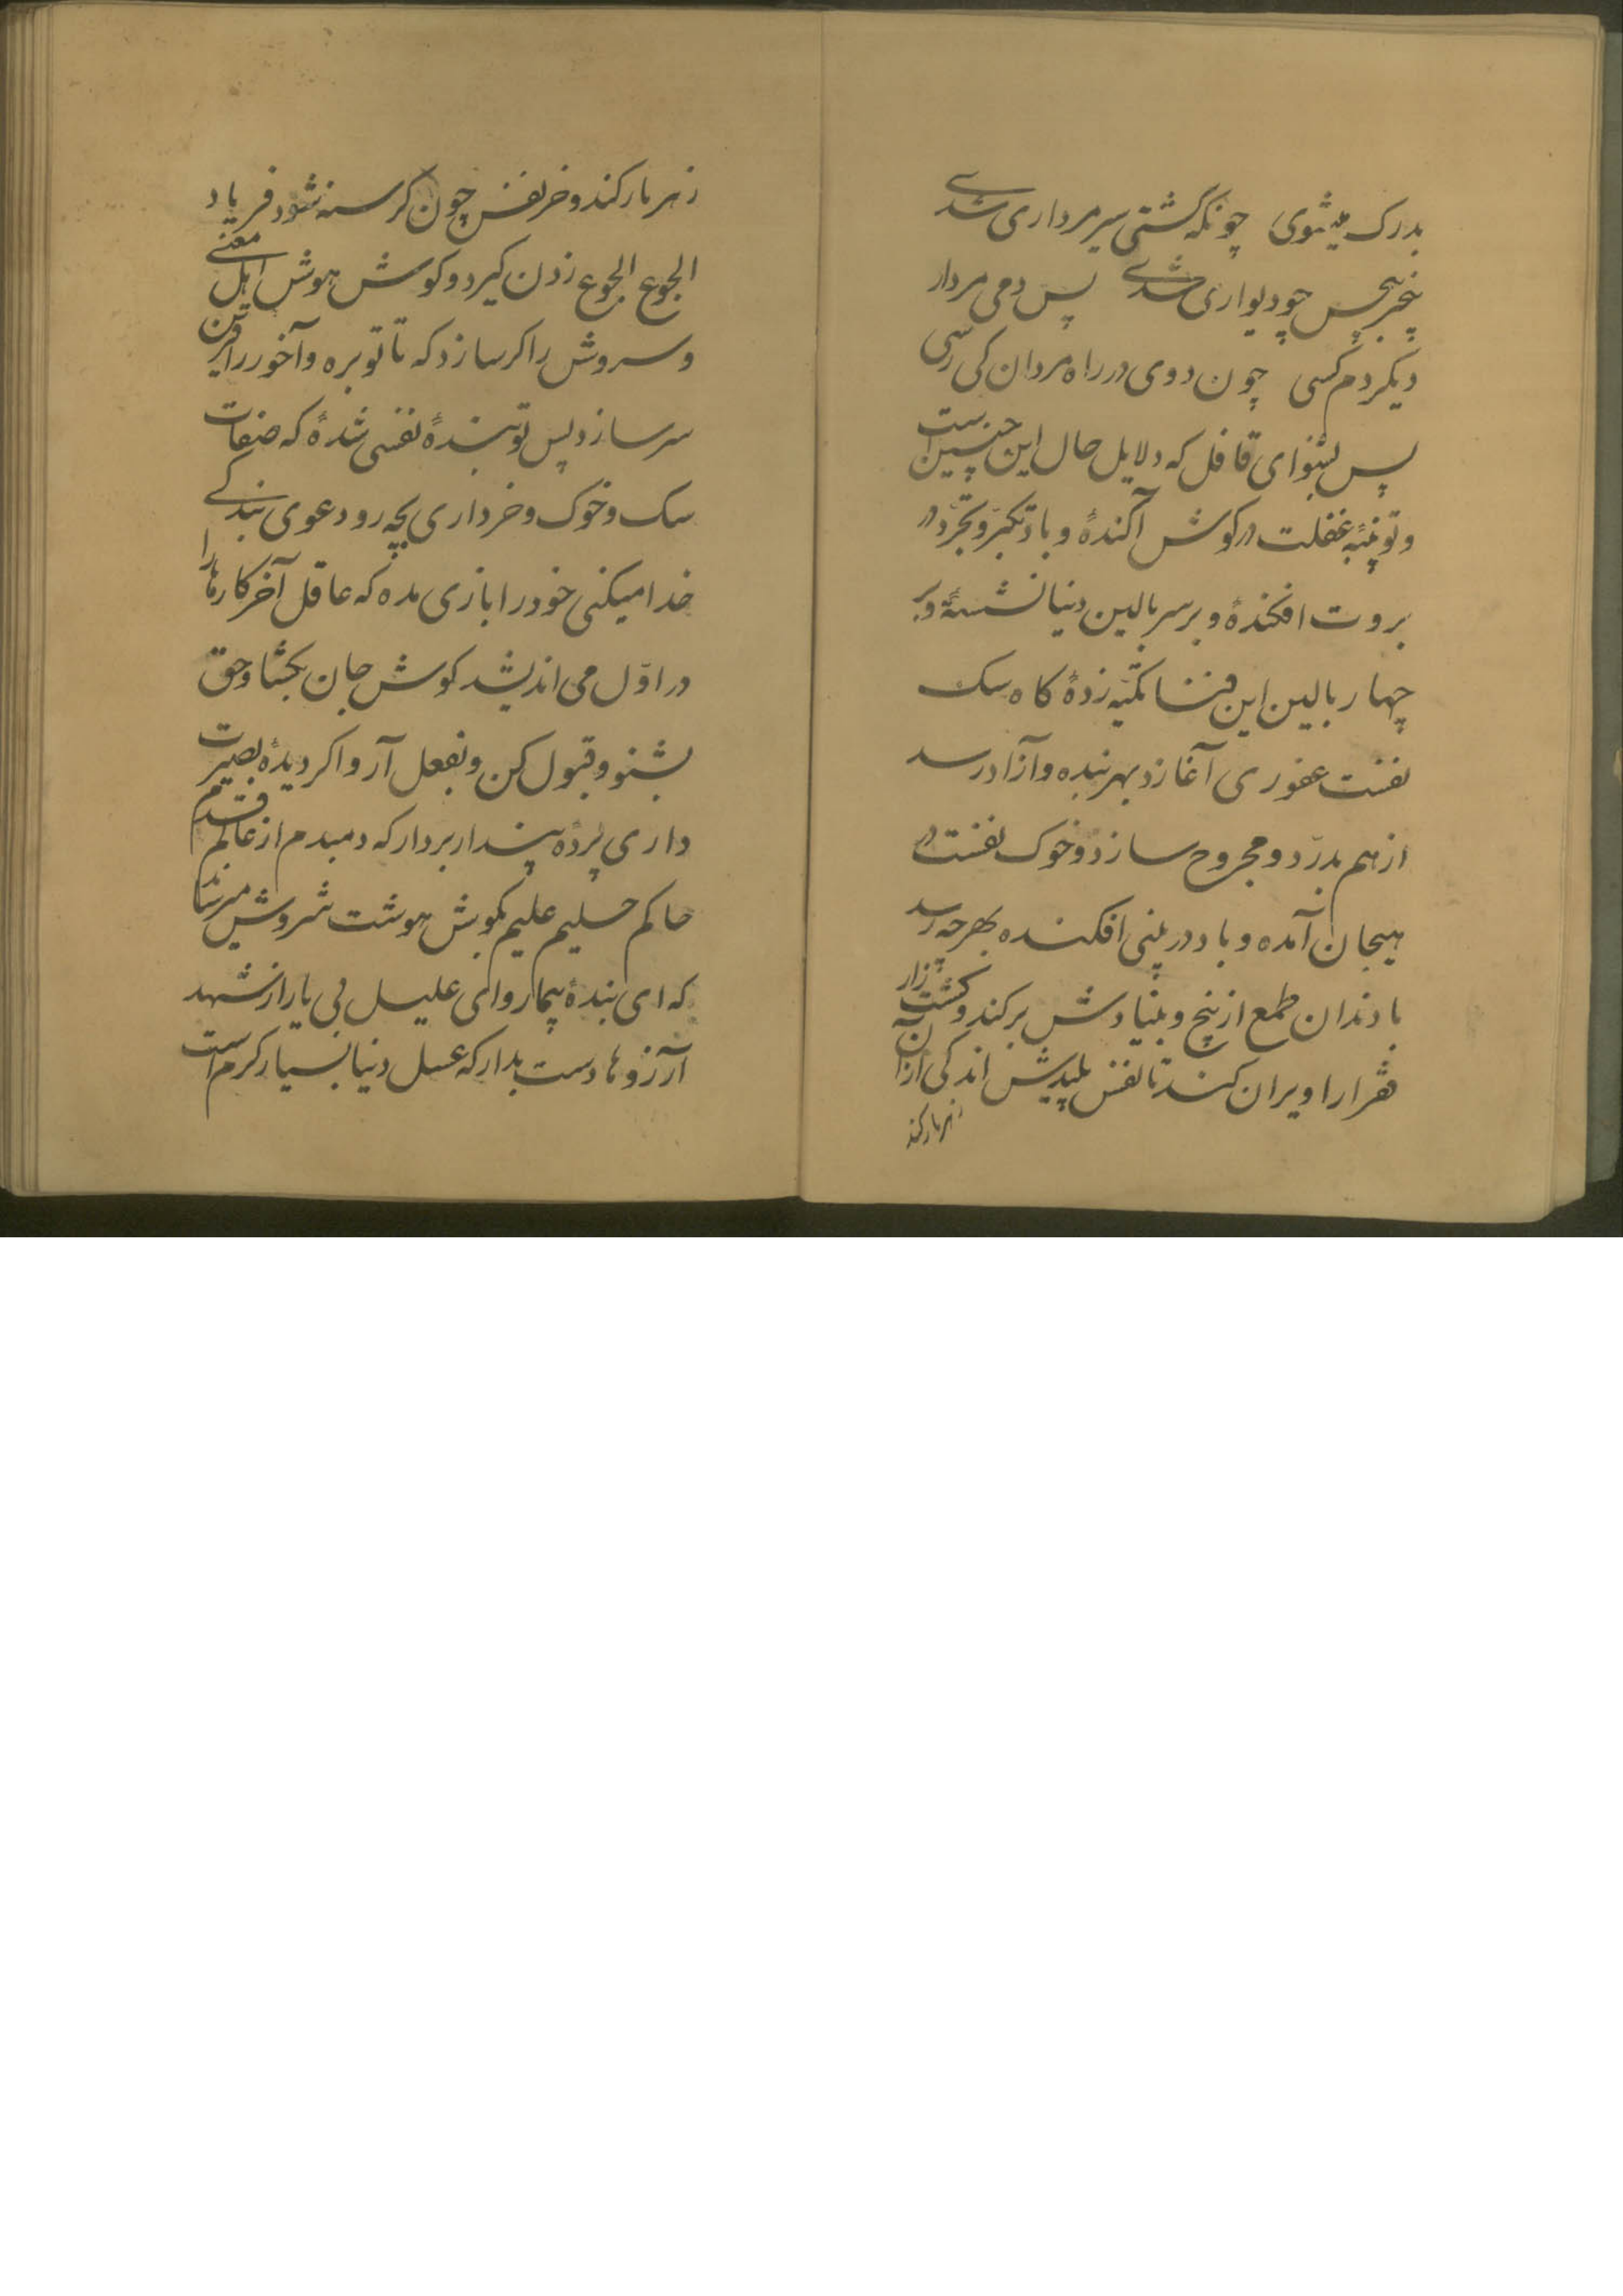 بدرک میشوی چونکه گشتی سیر مرداری شدی
بیخبر بیحس چو دیواری شدی پس دمی مردار
دیگر دم کسی چون دوی در راه مردان کی رسی
پس بشنو ای قافل که دلایل حال این چنین است
و تو پنبهٔ غفلت در کوش آکندهٔ و باد تکبر و تجرد در
بروت افکندهٔ و بر سر بالین دنیا نشستهٔ و بر
چهار بالین این فنا تکیه زدهٔ کاه سک
نفست عفوری آغازد بهر بنده و آزاد رسد
از هم بدرّد و مجروح سازد و خوک نفست در
هیجان آمده و باد در بینی افکنده بهر چه رسد
با دندان طمع از بیخ و بنیادش برکند و کشت زار
فقرا را ویران کند تا نفس پلیدش اندکی از آن
زهر مار کند
زهر مار کند و خر نفس چون کرسنه شود فریاد
الجوع الجوع زدن کیرد و کوش هوش اهل معنی
و سروش را کر سازد که تا توبره و آخور را
سر سازد پس تو بندهٔ نفسی شدهٔ که صفات
سک و خوک و خر داری بچه رو دعوی بندکی
خدا میکنی خود را بازی مده که عاقل آخر کارها را
در اوّل می اندیشد کوش جان بکشا و حق
بشنو و قبول کن و بفعل آر و اکر دیدهٔ بصیرت
داری پردهٔ پندار بردار که دمبدم از عالم قدم
حاکم حلیم علیم بکوش هوشت سروش میرساند
که ای بندهٔ بیمار وای علیل بی یار از شهد
آرزوها دست بدار که عسل دنیا بسیار کرم است